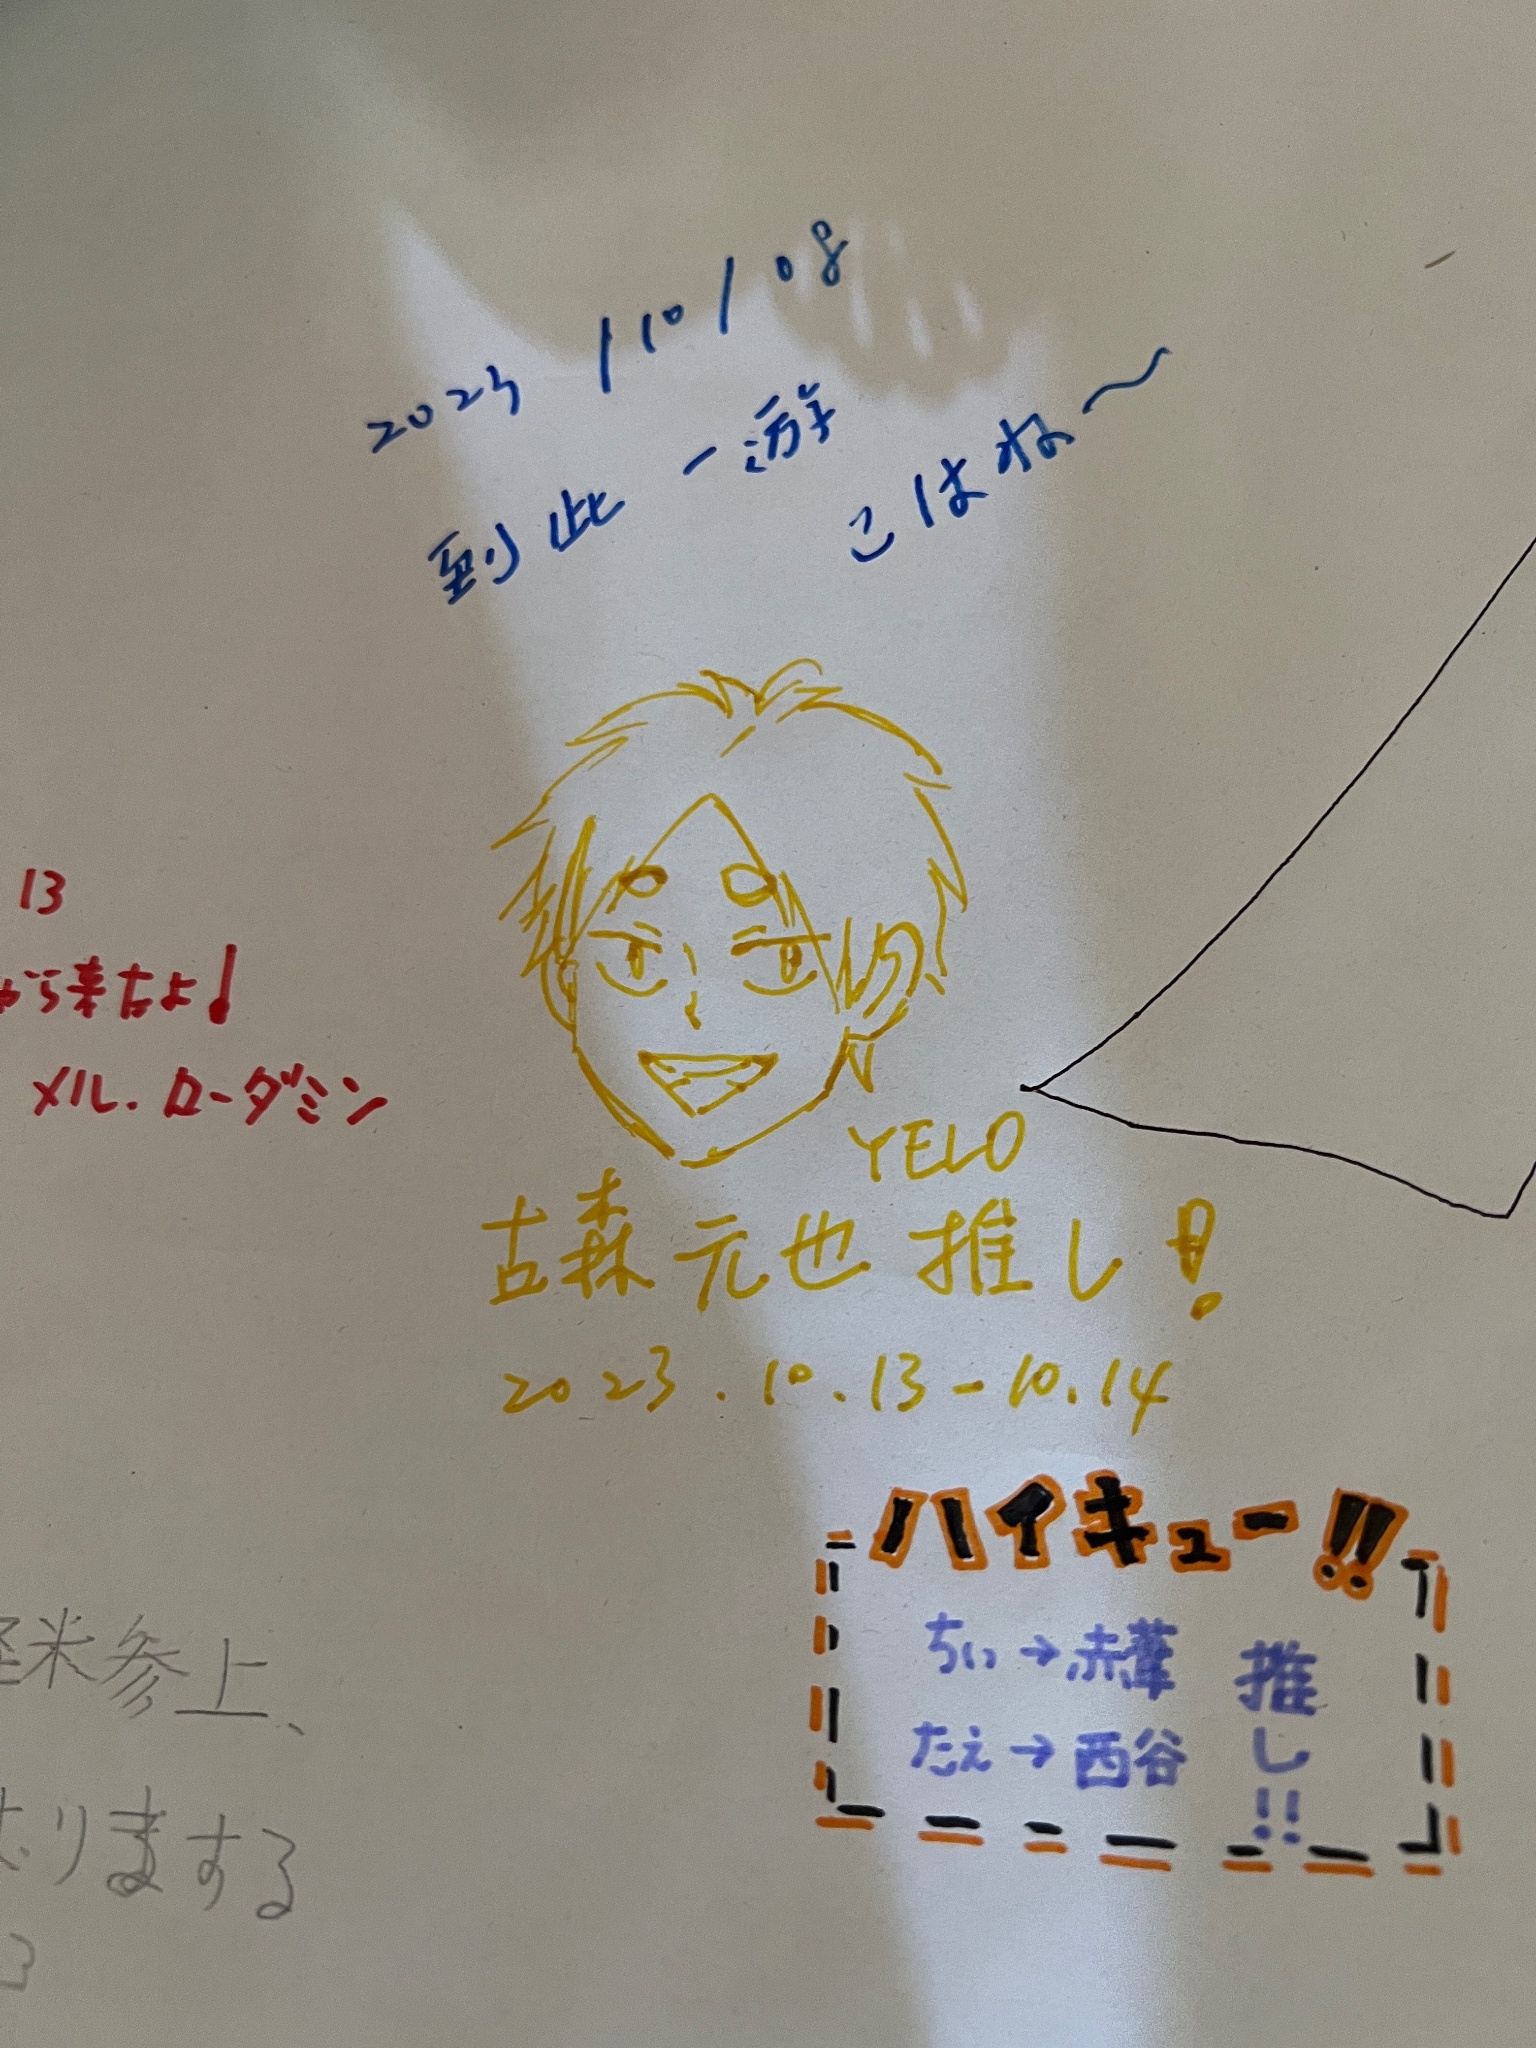 2023/10/08
到此一游
こはね〜
13
から来たよ!
メル.ローダミン
YELO
古森元也推し!
2023.10.13-10.14
ハイキュー!!
ちぃ→赤葦
たえ→西谷
推し!!
米参上、
たりまする